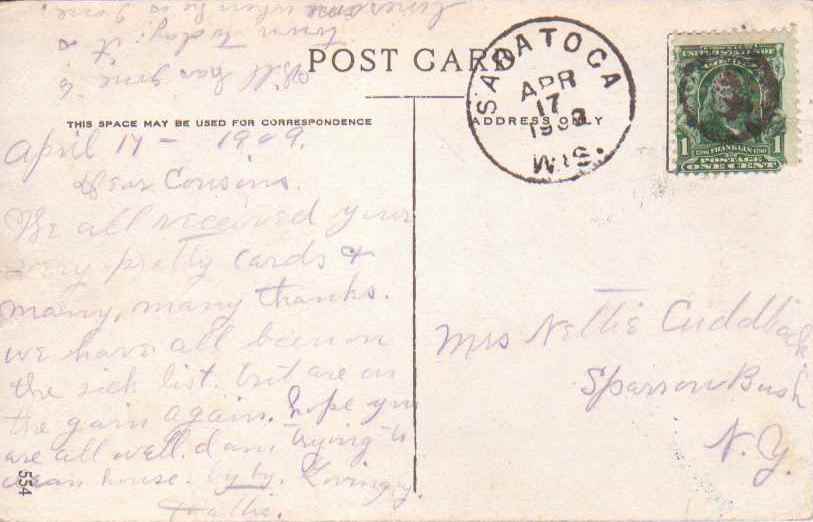 POST CARD
THIS SPACE MAY BE USED FOR CORRESPONDENCE
ADDRESS ONLY
SARATOGA
APR
17
1909
WIS.
1 FRANKLIN 1
POSTAGE
ONE CENT
April 17 - 1909.
Dear Cousins.
We all received your
very pretty cards &
many, many thanks.
we have all been on
the sick list. but are on
the gain again. hope you
are all well. I am trying to
clean house. by by. Lovingly.
Hattie.
Will has gone to
town today; it is
lonesome when he is gone.
Mrs Nellie Cuddback
Sparrow Bush
N.Y.
554